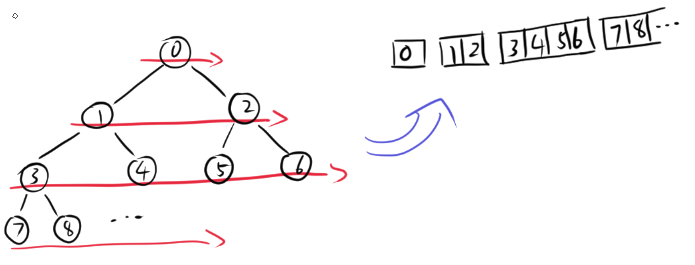 0
1 2
3 4 5 6
7 8 ...
0 1 2 3 4 5 6 7 8 ...